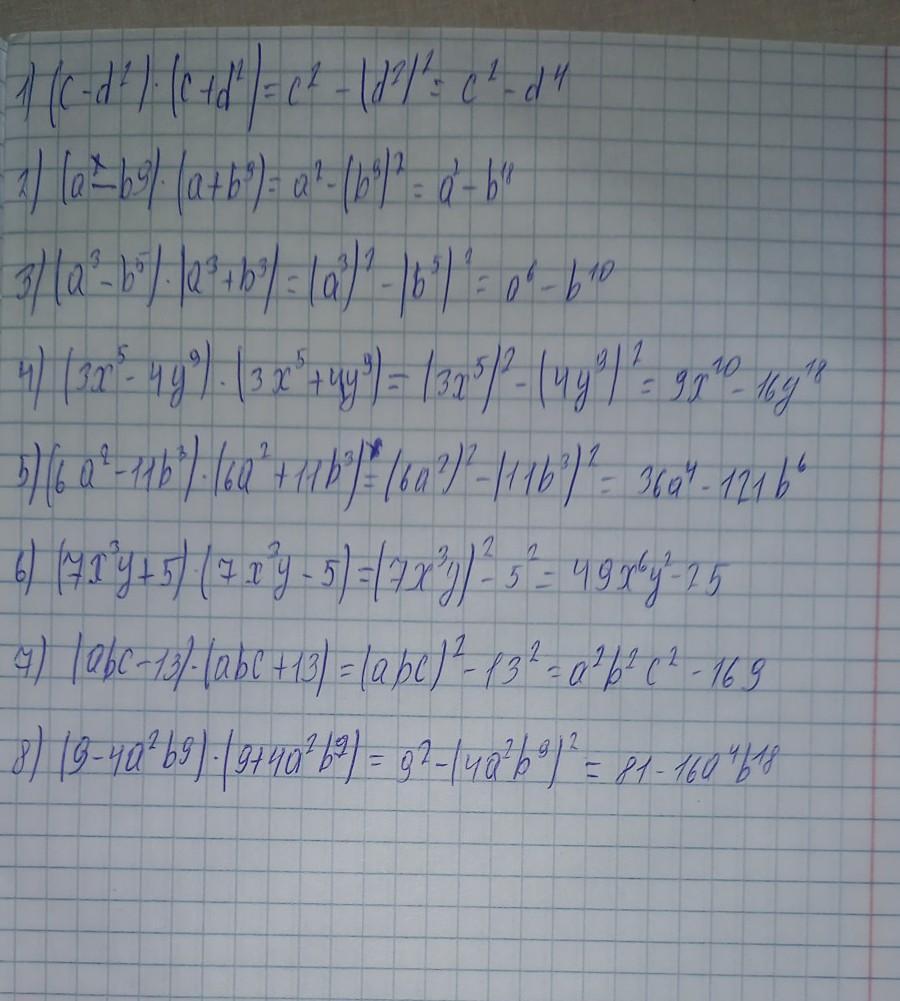 1) (c-d²)·(c+d²)=c² - (d²)² = c² - d⁴
2) (a-b9)·(a+b⁹)= a² - (b⁹)² = a² - b¹⁸
3) (a³ - b⁵)·(a³+b³) = (a³)² - (b⁵)² = a⁶ - b¹⁰
4) (3x⁵ - 4y⁹)·(3x⁵+4y⁹) = (3x⁵)² - (4y⁹)² = 9x¹⁰ - 16y¹⁸
5) (6a² - 11b³)·(6a² + 11b³) = (6a²)² - (11b³)² = 36a⁴ - 121b⁶
6) (7x³y+5)·(7x³y - 5) = (7x³y)² - 5² = 49x⁶y² - 25
7) (abc - 13)·(abc + 13) = (abc)² - 13² = a²b²c² - 169
8) (9-4a²b9)·(9+4a²b⁹) = 9² - (4a²b⁹)² = 81 - 16a⁴b¹⁸